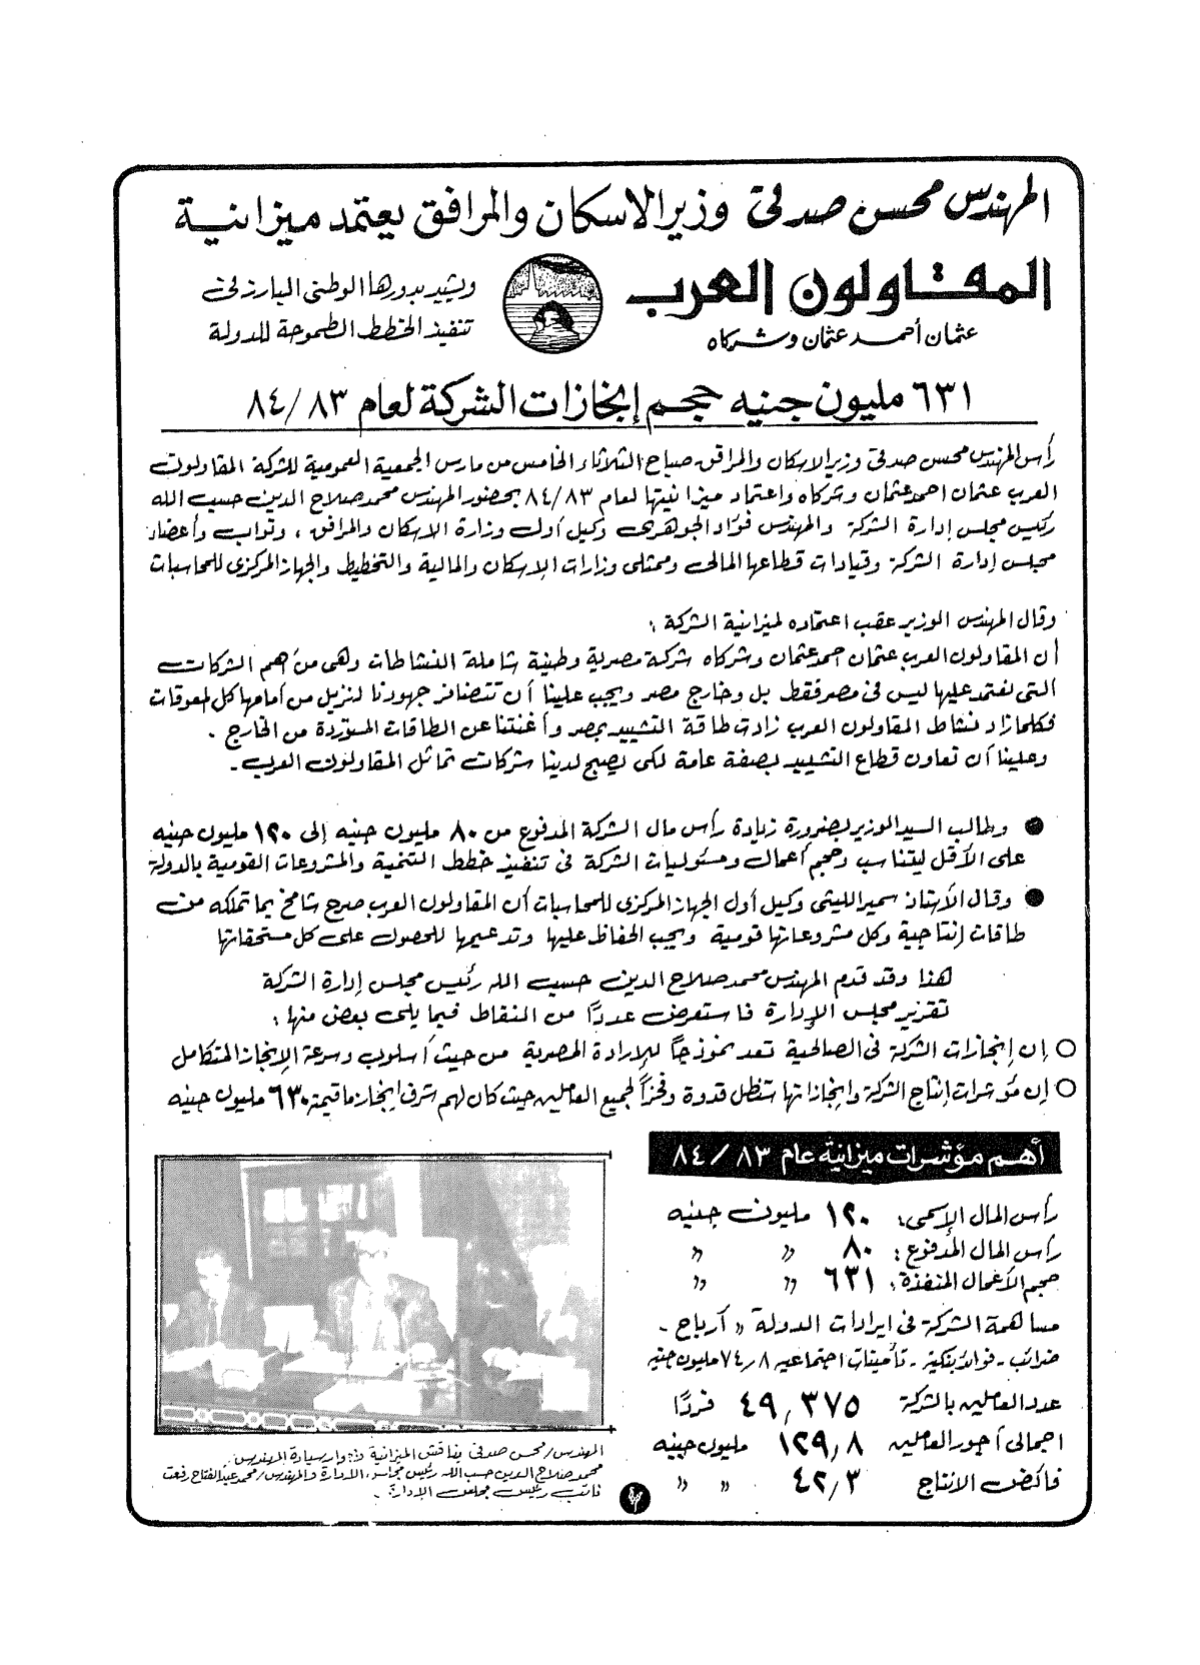 المهندس محسن صدقى وزير الاسكان والمرافق يعتمد ميزانية
المقاولون العرب
عثمان أحمد عثمان وشركاه
ويشيد بدورها الوطنى البارز فى
تنفيذ الخطط الطموحة للدولة
٦٣١ مليون جنيه حجم إنجازات الشركة لعام ٨٤/٨٣
رأس المهندس محسن صدقى وزير الاسكان والمرافق صباح الثلاثاء الخامس من مارس الجمعية العمومية للشركة المقاولون
العرب عثمان احمد عثمان وشركاه واعتماد ميزانيتها لعام ٨٤/٨٣ بحضور المهندس محمد صلاح الدين حسب الله
رئيس مجلس إدارة الشركة والمهندس فؤاد الجوهرى وكيل أول وزارة الاسكان والمرافق ، ونواب وأعضاء
مجلس إدارة الشركة وقيادات قطاعها المالى وممثلى وزارات الإسكان والمالية والتخطيط والجهاز المركزى للمحاسبات
وقال المهندس الوزير عقب اعتماده لميزانية الشركة :
أن المقاولون العرب عثمان احمد عثمان وشركاه شركة مصرية وطنية شاملة النشاطات وهى من أهم الشركات
التى نعتمد عليها ليس فى مصر فقط بل وخارج مصر ويجب علينا أن تتضافر جهودنا لنزيل من أمامها كل المعوقات
فكلما زاد نشاط المقاولون العرب زادت طاقة التشييد بمصر وأغنتنا عن الطاقات المستوردة من الخارج .
وعلينا أن نعاون قطاع التشييد بصفة عامة لكى يصبح لدينا شركات تماثل المقاولون العرب .
● وطالب السيد الوزير بضرورة زيادة رأس مال الشركة المدفوع من ٨٠ مليون جنيه إلى ١٢٠ مليون جنيه
على الأقل ليتناسب وحجم أعمال ومسئوليات الشركة فى تنفيذ خطط التنمية والمشروعات القومية بالدولة
● وقال الأستاذ سمير الليثى وكيل أول الجهاز المركزى للمحاسبات أن المقاولون العرب صرح شامخ بما تملكه من
طاقات إنتاجية وكل مشروعاتها قومية ويجب الحفاظ عليها وتدعيمها للحصول على كل مستحقاتها
هذا وقد قدم المهندس محمد صلاح الدين حسب الله رئيس مجلس إدارة الشركة
تقرير مجلس الإدارة فاستعرض عددًا من النقاط فيما يلى بعض منها :
○ إن إنجازات الشركة فى الصالحية تعد نموذجًا للإرادة المصرية من حيث أسلوب وسرعة الإنجاز المتكامل
○ إن مؤشرات إنتاج الشركة وإنجازاتها ستظل قدوة وفخرًا لجميع العاملين حيث كان لهم شرف إنجاز ما قيمته ٦٣٠ مليون جنيه
أهم مؤشرات ميزانية عام ٨٤/٨٣
رأس المال الإسمى : ١٢٠ مليون جنيه
رأس المال المدفوع : ٨٠ " "
حجم الأعمال المنفذة : ٦٣١ " "
مساهمة الشركة فى ايرادات الدولة " أرباح -
ضرائب - فوائد بنكية - تأمينات اجتماعيه ٧٤/٨ مليون جنيه
عدد العاملين بالشركة ٤٩,٣٧٥ فردًا
اجمالى أجور العاملين ١٢٩,٨ مليون جنيه
فائض الانتاج ٤٢,٣ " "
المهندس/محسن صدقى يناقش الميزانية وبجوار سيادة المهندس
محمد صلاح الدين حسب الله رئيس مجلس الادارة والمهندس/محمد عبد الفتاح رفعت
نائب رئيس مجلس الإدارة .